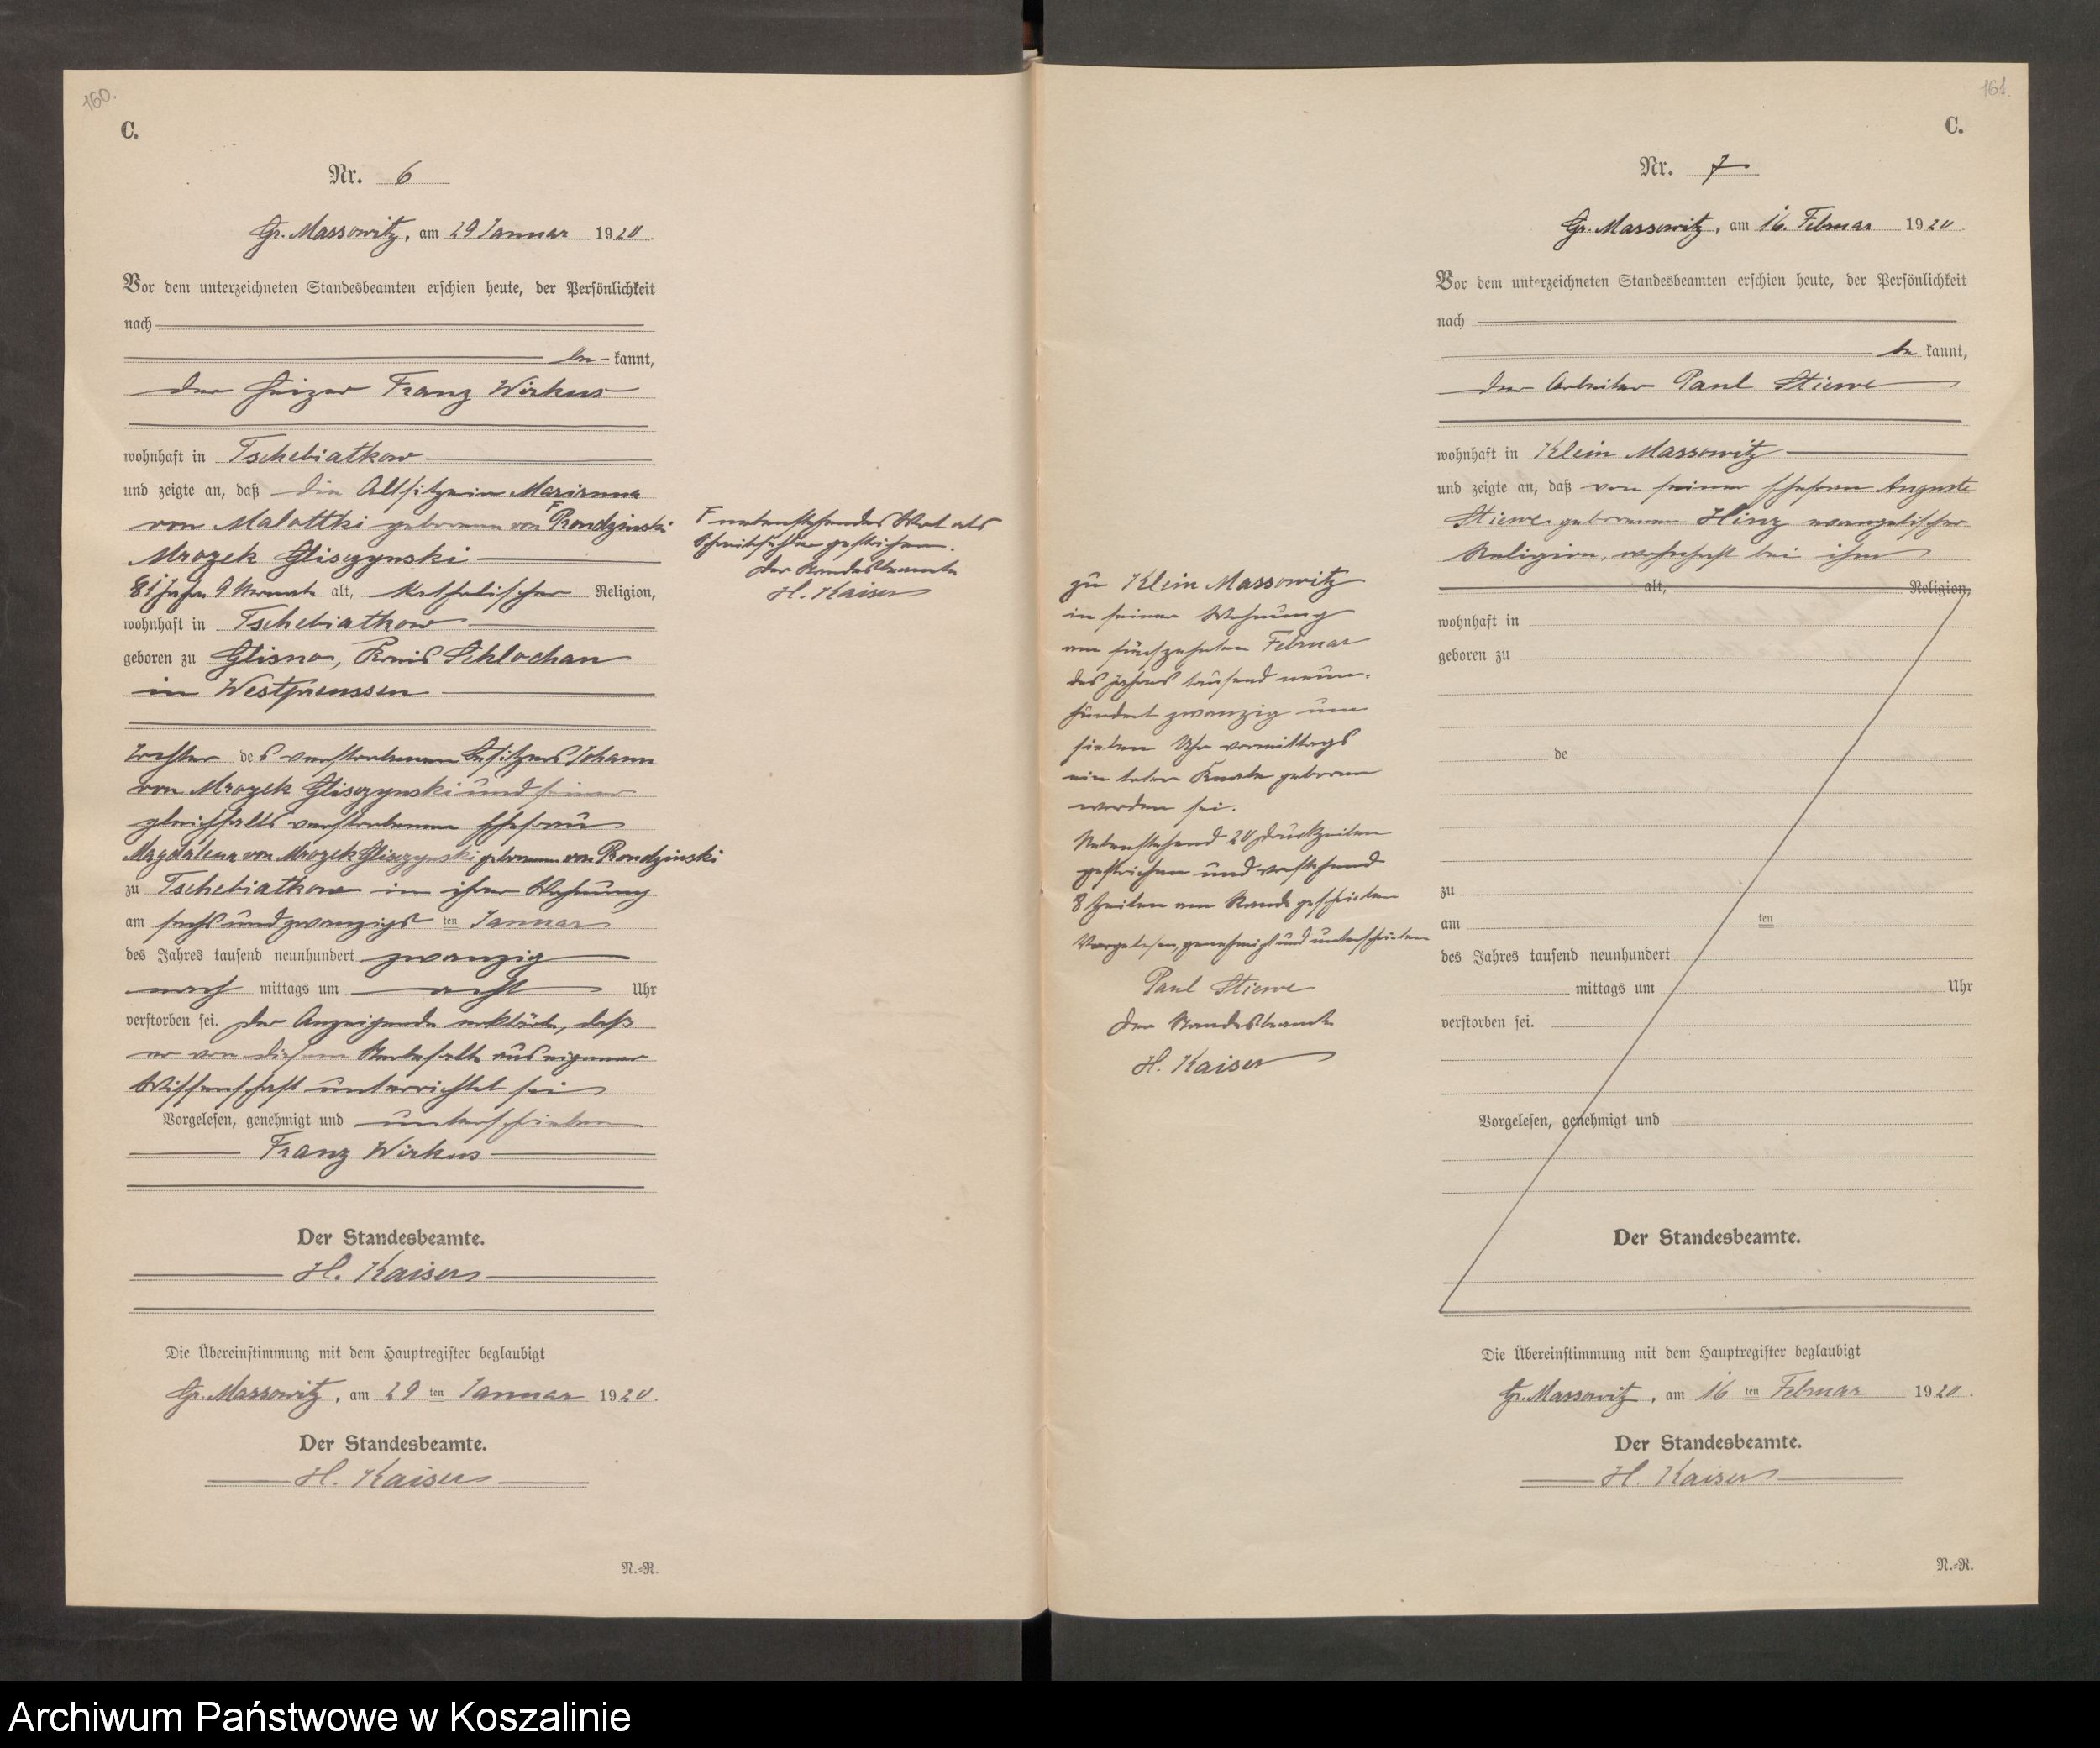 160.
C.
Nr. 6
Gr. Massowitz, am 29 Januar 1920.
Vor dem unterzeichneten Standesbeamten erschien heute, der Persönlichkeit
nach
be-kannt,
der Heizer Franz Wirkus
wohnhaft in Tschebiatkow
und zeigte an, daß die Altsitzerin Marianna
von Malottki geborenen von F Rondzinski
Mrozek Gliszynski
81 Jahre 9 Monate alt, katholischer Religion,
wohnhaft in Tschebiatkow
geboren zu Glisno, Kreis Schlochau
in Westpreussen
Tochter des verstorbenen Besitzers Johann
von Mrozek Gliszynski und seiner
gleichfalls verstorbenen Ehefrau
Magdalena von Mrozek Gliszynski geborenen von Rondzinski
zu Tschebiatkow in ihrer Wohnung
am sechsundzwanzigsten Januar
des Jahres tausend neunhundert zwanzig
nach mittags um acht Uhr
verstorben sei. Der Anzeigende erklärte, daß
er von diesem Sterbefalle aus eigener
Wissenschaft unterrichtet sei
Vorgelesen, genehmigt und unterschrieben
Franz Wirkus
Der Standesbeamte.
H. Kaiser
Die Übereinstimmung mit dem Hauptregister beglaubigt
Gr. Massowitz, am 29 ten Januar 1920.
Der Standesbeamte.
H. Kaiser
N.-R.
F nebenstehendes Wort als
Schreibfehler gestrichen.
Der Standesbeamte
H. Kaiser
161.
C.
Nr. 7
Gr. Massowitz, am 16. Februar 1920.
Vor dem unterzeichneten Standesbeamten erschien heute, der Persönlichkeit
nach
be kannt,
der Arbeiter Paul Stiewe
wohnhaft in Klein Massowitz
und zeigte an, daß von seiner Ehefrau Auguste
Stiewe geborenen Hinz evangelischer
Religion, wohnhaft bei ihm
alt, Religion,
wohnhaft in
geboren zu
de
zu
am ten
des Jahres tausend neunhundert
mittags um Uhr
verstorben sei.
Vorgelesen, genehmigt und
Der Standesbeamte.
Die Übereinstimmung mit dem Hauptregister beglaubigt
Gr. Massowitz, am 16 ten Februar 1920.
Der Standesbeamte.
H. Kaiser
N.-R.
zu Klein Massowitz
in seiner Wohnung
am fünfzehnten Februar
des Jahres tausend neun-
hundert zwanzig um
sieben Uhr vormittags
ein toter Knabe geboren
worden sei.
Nebenstehend 20 Druckzeilen
gestrichen und vorstehend
8 Zeilen am Rande geschrieben
Vorgelesen, genehmigt und unterschrieben
Paul Stiewe
Der Standesbeamte
H. Kaiser
Archiwum Państwowe w Koszalinie